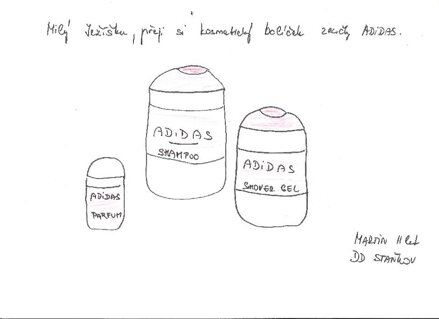 Milý Ježíšku, přeji si kosmetický balíček značky ADIDAS.
ADIDAS
SHAMPOO
ADIDAS
SHOWER GEL
ADIDAS
PARFUM
MARTIN 11 let
DD STAŇKOV